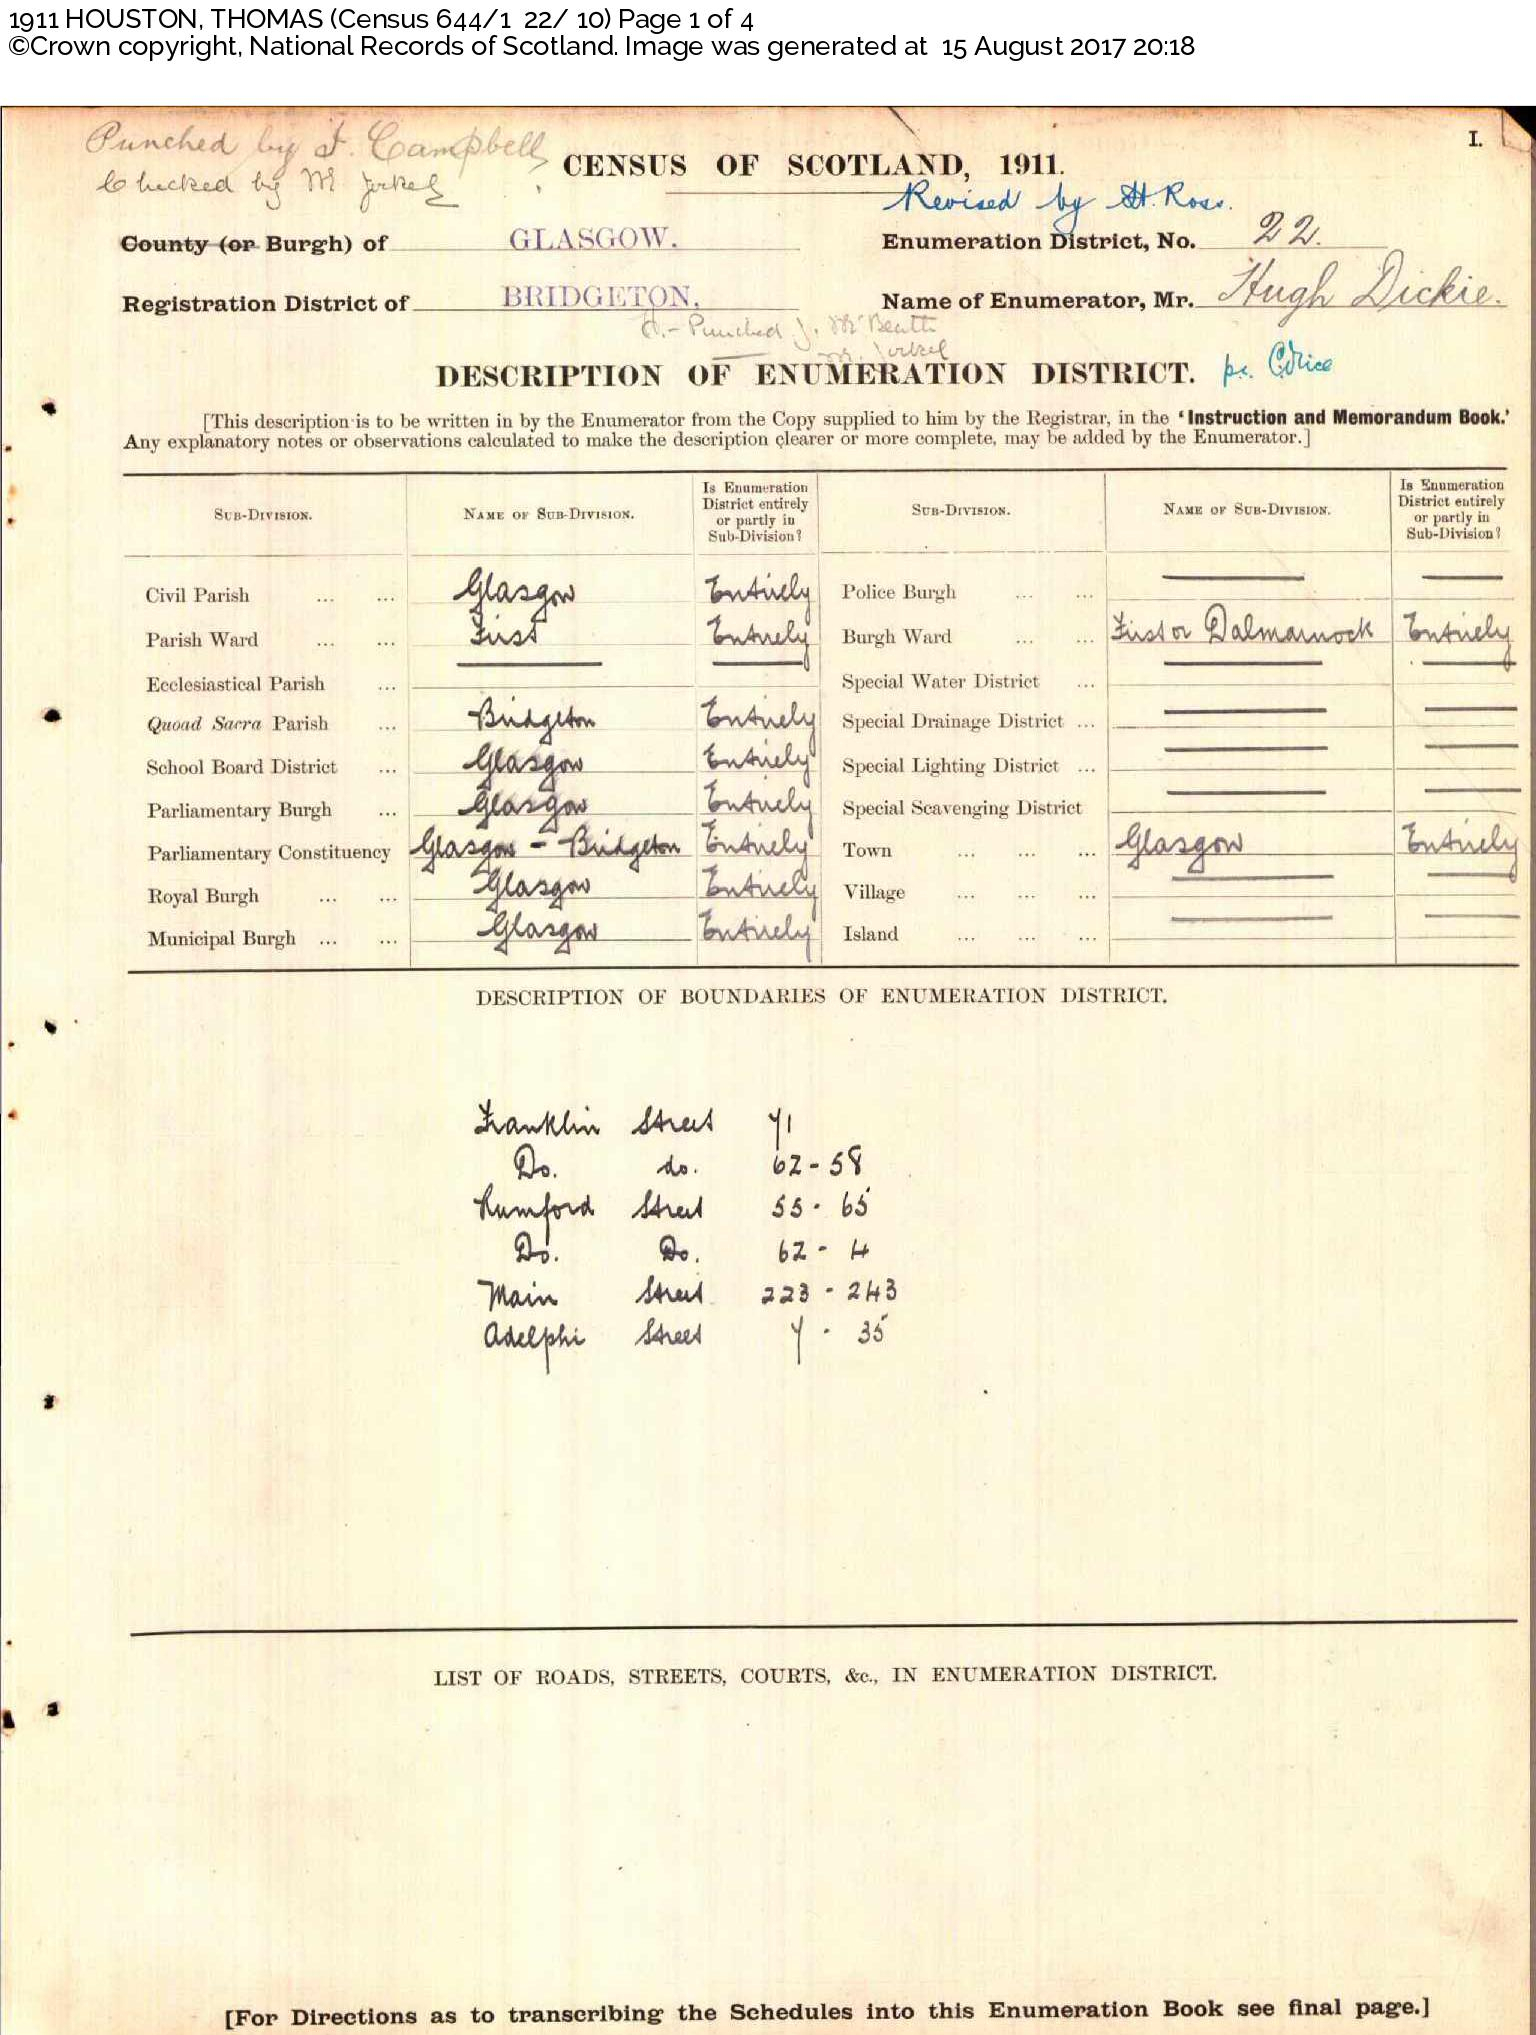 1911 HOUSTON, THOMAS (Census 644/1 22/ 10) Page 1 of 4
©Crown copyright, National Records of Scotland. Image was generated at 15 August 2017 20:18
I.
Punched by J. Campbell
Checked by M
CENSUS OF SCOTLAND, 1911.
Revised by H. Ross.
County (or Burgh) of GLASGOW. Enumeration District, No. 22.
Registration District of BRIDGETON. Name of Enumerator, Mr. Hugh Dickie.
H.- Punched J. McBeath
DESCRIPTION OF ENUMERATION DISTRICT. pc.
[This description is to be written in by the Enumerator from the Copy supplied to him by the Registrar, in the 'Instruction and Memorandum Book.'
Any explanatory notes or observations calculated to make the description clearer or more complete, may be added by the Enumerator.]
SUB-DIVISION. NAME OF SUB-DIVISION. Is Enumeration District entirely or partly in Sub-Division? SUB-DIVISION. NAME OF SUB-DIVISION. Is Enumeration District entirely or partly in Sub-Division?
Civil Parish ... ... Glasgow Entirely Police Burgh ... ... — —
Parish Ward ... ... First Entirely Burgh Ward ... ... First or Dalmarnock Entirely
Ecclesiastical Parish ... — — Special Water District ... — —
Quoad Sacra Parish ... Bridgeton Entirely Special Drainage District ... — —
School Board District ... Glasgow Entirely Special Lighting District ... — —
Parliamentary Burgh ... Glasgow Entirely Special Scavenging District — —
Parliamentary Constituency Glasgow - Bridgeton Entirely Town ... ... ... Glasgow Entirely
Royal Burgh ... ... Glasgow Entirely Village ... ... ... — —
Municipal Burgh ... ... Glasgow Entirely Island ... ... ... — —
DESCRIPTION OF BOUNDARIES OF ENUMERATION DISTRICT.
Franklin Street 71
Do. do. 62 - 58
Rumford Street 55 - 65
Do. Do. 62 - 4
Main Street 223 - 243
Adelphi Street 7 - 35
LIST OF ROADS, STREETS, COURTS, &c., IN ENUMERATION DISTRICT.
[For Directions as to transcribing the Schedules into this Enumeration Book see final page.]